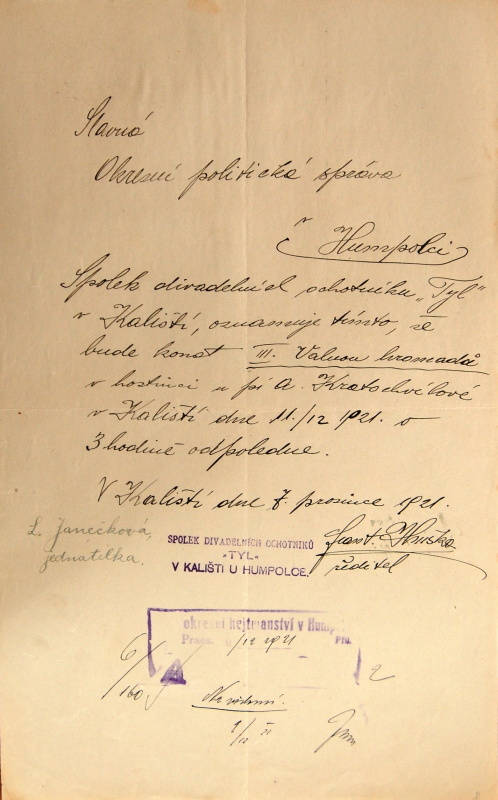 Slavná
Okresní politická správa
v
Humpolci
Spolek divadelních ochotníků „Tyl"
v Kališti, oznamuje tímto, že
bude konat III. Valnou hromadu
v hostinci u pí A. Kratochvílové
v Kališti dne 11./12 1921. o
3 hodině odpoledne.
V Kališti dne 7. prosince 1921.
L. Janečková,
jednatelka.
SPOLEK DIVADELNÍCH OCHOTNÍKŮ
"TYL"
V KALIŠTI U HUMPOLCE.
Frant.
ředitel
okresní hejtmanství v Hump
Praes. /12 1921 Pří.
6/
160
2
Na vědomí.
9/12 21